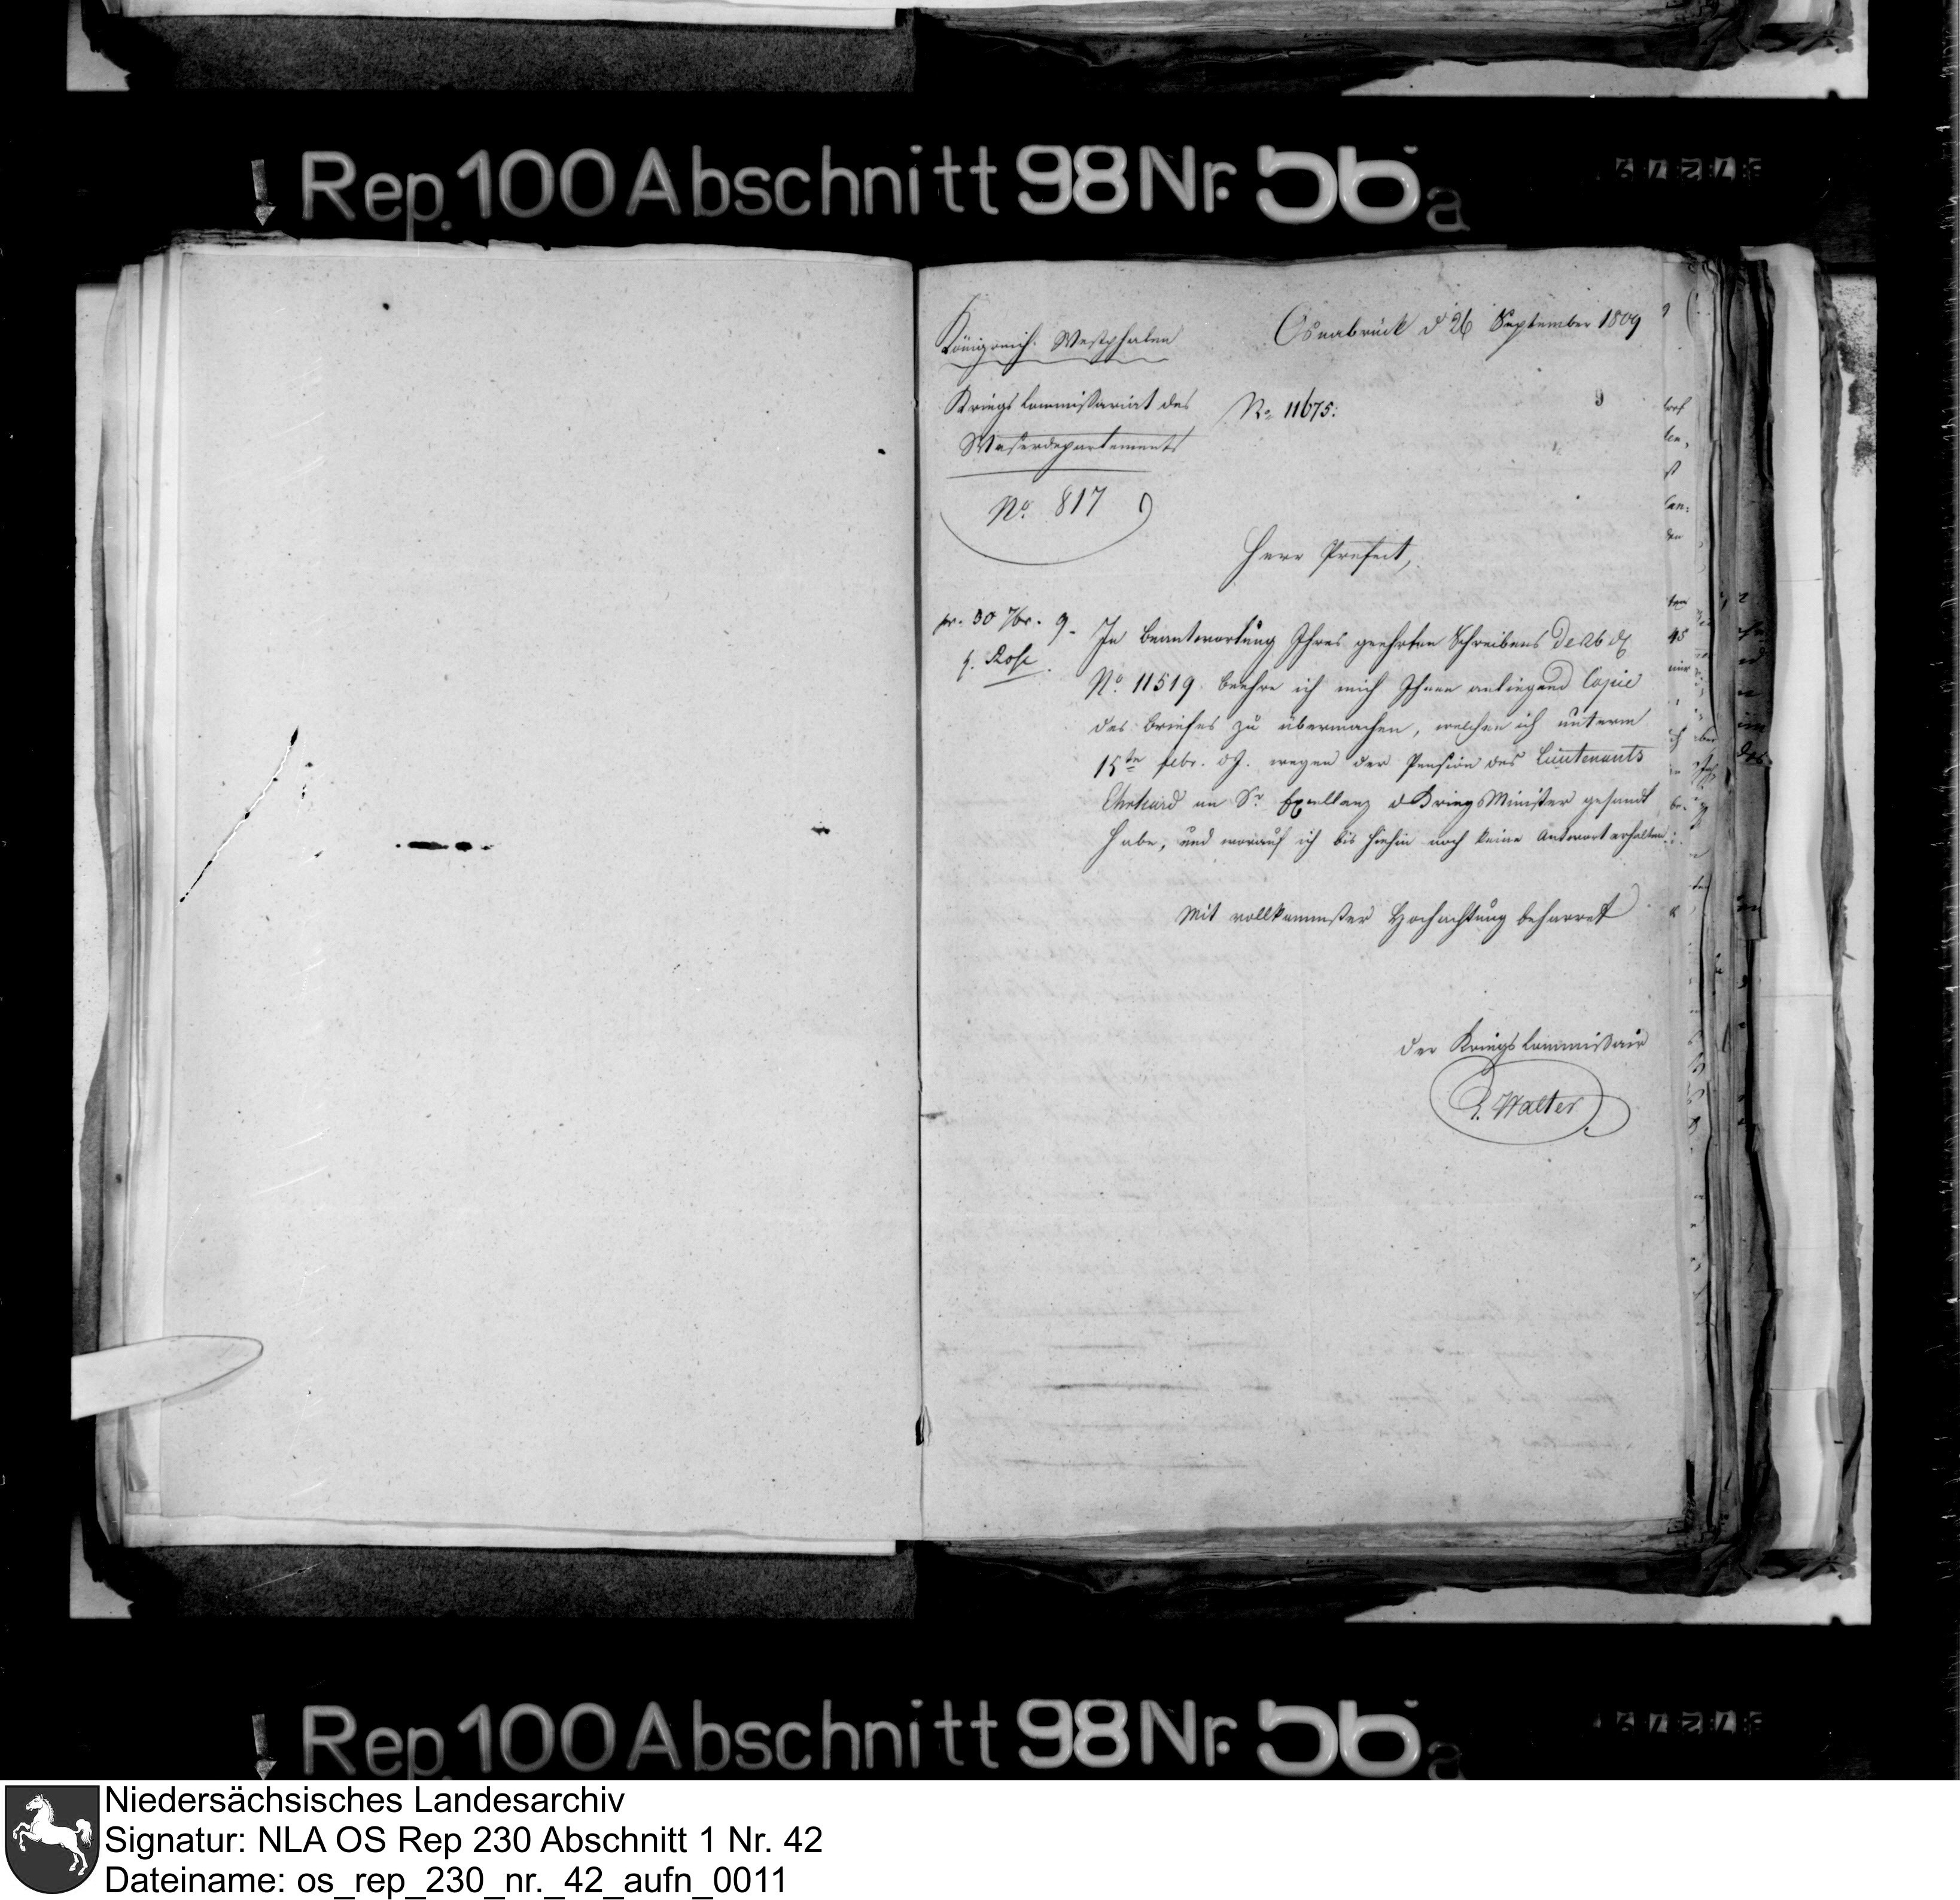 Rep. 100 Abschnitt 98 Nr. 56 a
Königreich Westphalen
Osnabrück d 26 September 1809
Kriegs Commissariat des
Weserdepartements
No 11675:
9
No. 817
Herr Prefect,
pr. 30 7br. 9.
Rose
In Beantwortung Ihres geehrten Schreibens
No. 11519 beehre ich mich Ihnen anliegend Copie
des Briefes zu übermachen, welchen ich unterm
15ten febr. dJ. wegen der Pension des Lieutenants
an Sr. Excellanz d Kriegs Minister gesandt
habe, und worauf ich bis hiehin noch keine Antwort erhalten.
Mit vollkommster Hochachtung beharret
der Kriegs Commissair
Walter
Rep. 100 Abschnitt 98 Nr. 56 a
Niedersächsisches Landesarchiv
Signatur: NLA OS Rep 230 Abschnitt 1 Nr. 42
Dateiname: os_rep_230_nr._42_aufn_0011